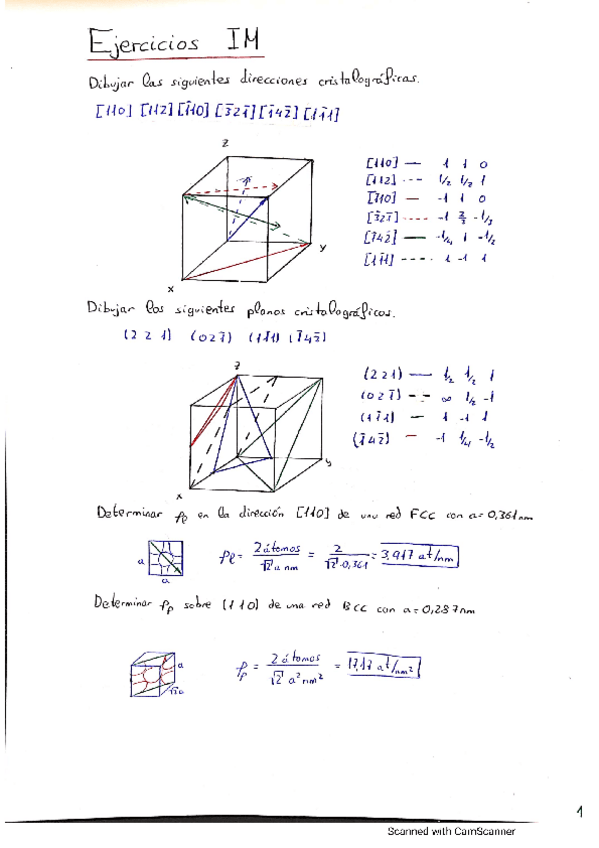 Ejercicios IM
Dibujar las siguientes direcciones cristalográficas.
[110] [112] [1̄10] [3̄21̄] [1̄42̄] [11̄1]
z
y
x
[110] — 1 1 0
[112] --- 1/2 1/2 1
[1̄10] — -1 1 0
[3̄21̄] ---- -1 2/3 -1/3
[1̄42̄] — -1/4 1 -1/2
[11̄1] ---- 1 -1 1
Dibujar los siguientes planos cristalográficos.
(2 2 1) (0 2 1̄) (1 1̄ 1) (1̄ 4 2̄)
z
y
x
(2 2 1) — 1/2 1/2 1
(0 2 1̄) --- ∞ 1/2 -1
(1 1̄ 1) — 1 -1 1
(1̄ 4 2̄) — -1 1/4 -1/2
Determinar ρl en la dirección [110] de una red FCC con a=0,361nm
a
a
ρl = 2 átomos / √2 a nm = 2 / √2·0,361 = 3.917 at/nm
Determinar ρp sobre (110) de una red BCC con a=0,287nm
a
√2a
ρp = 2 átomos / √2 a² nm² = 17.17 at/nm²
1
Scanned with CamScanner